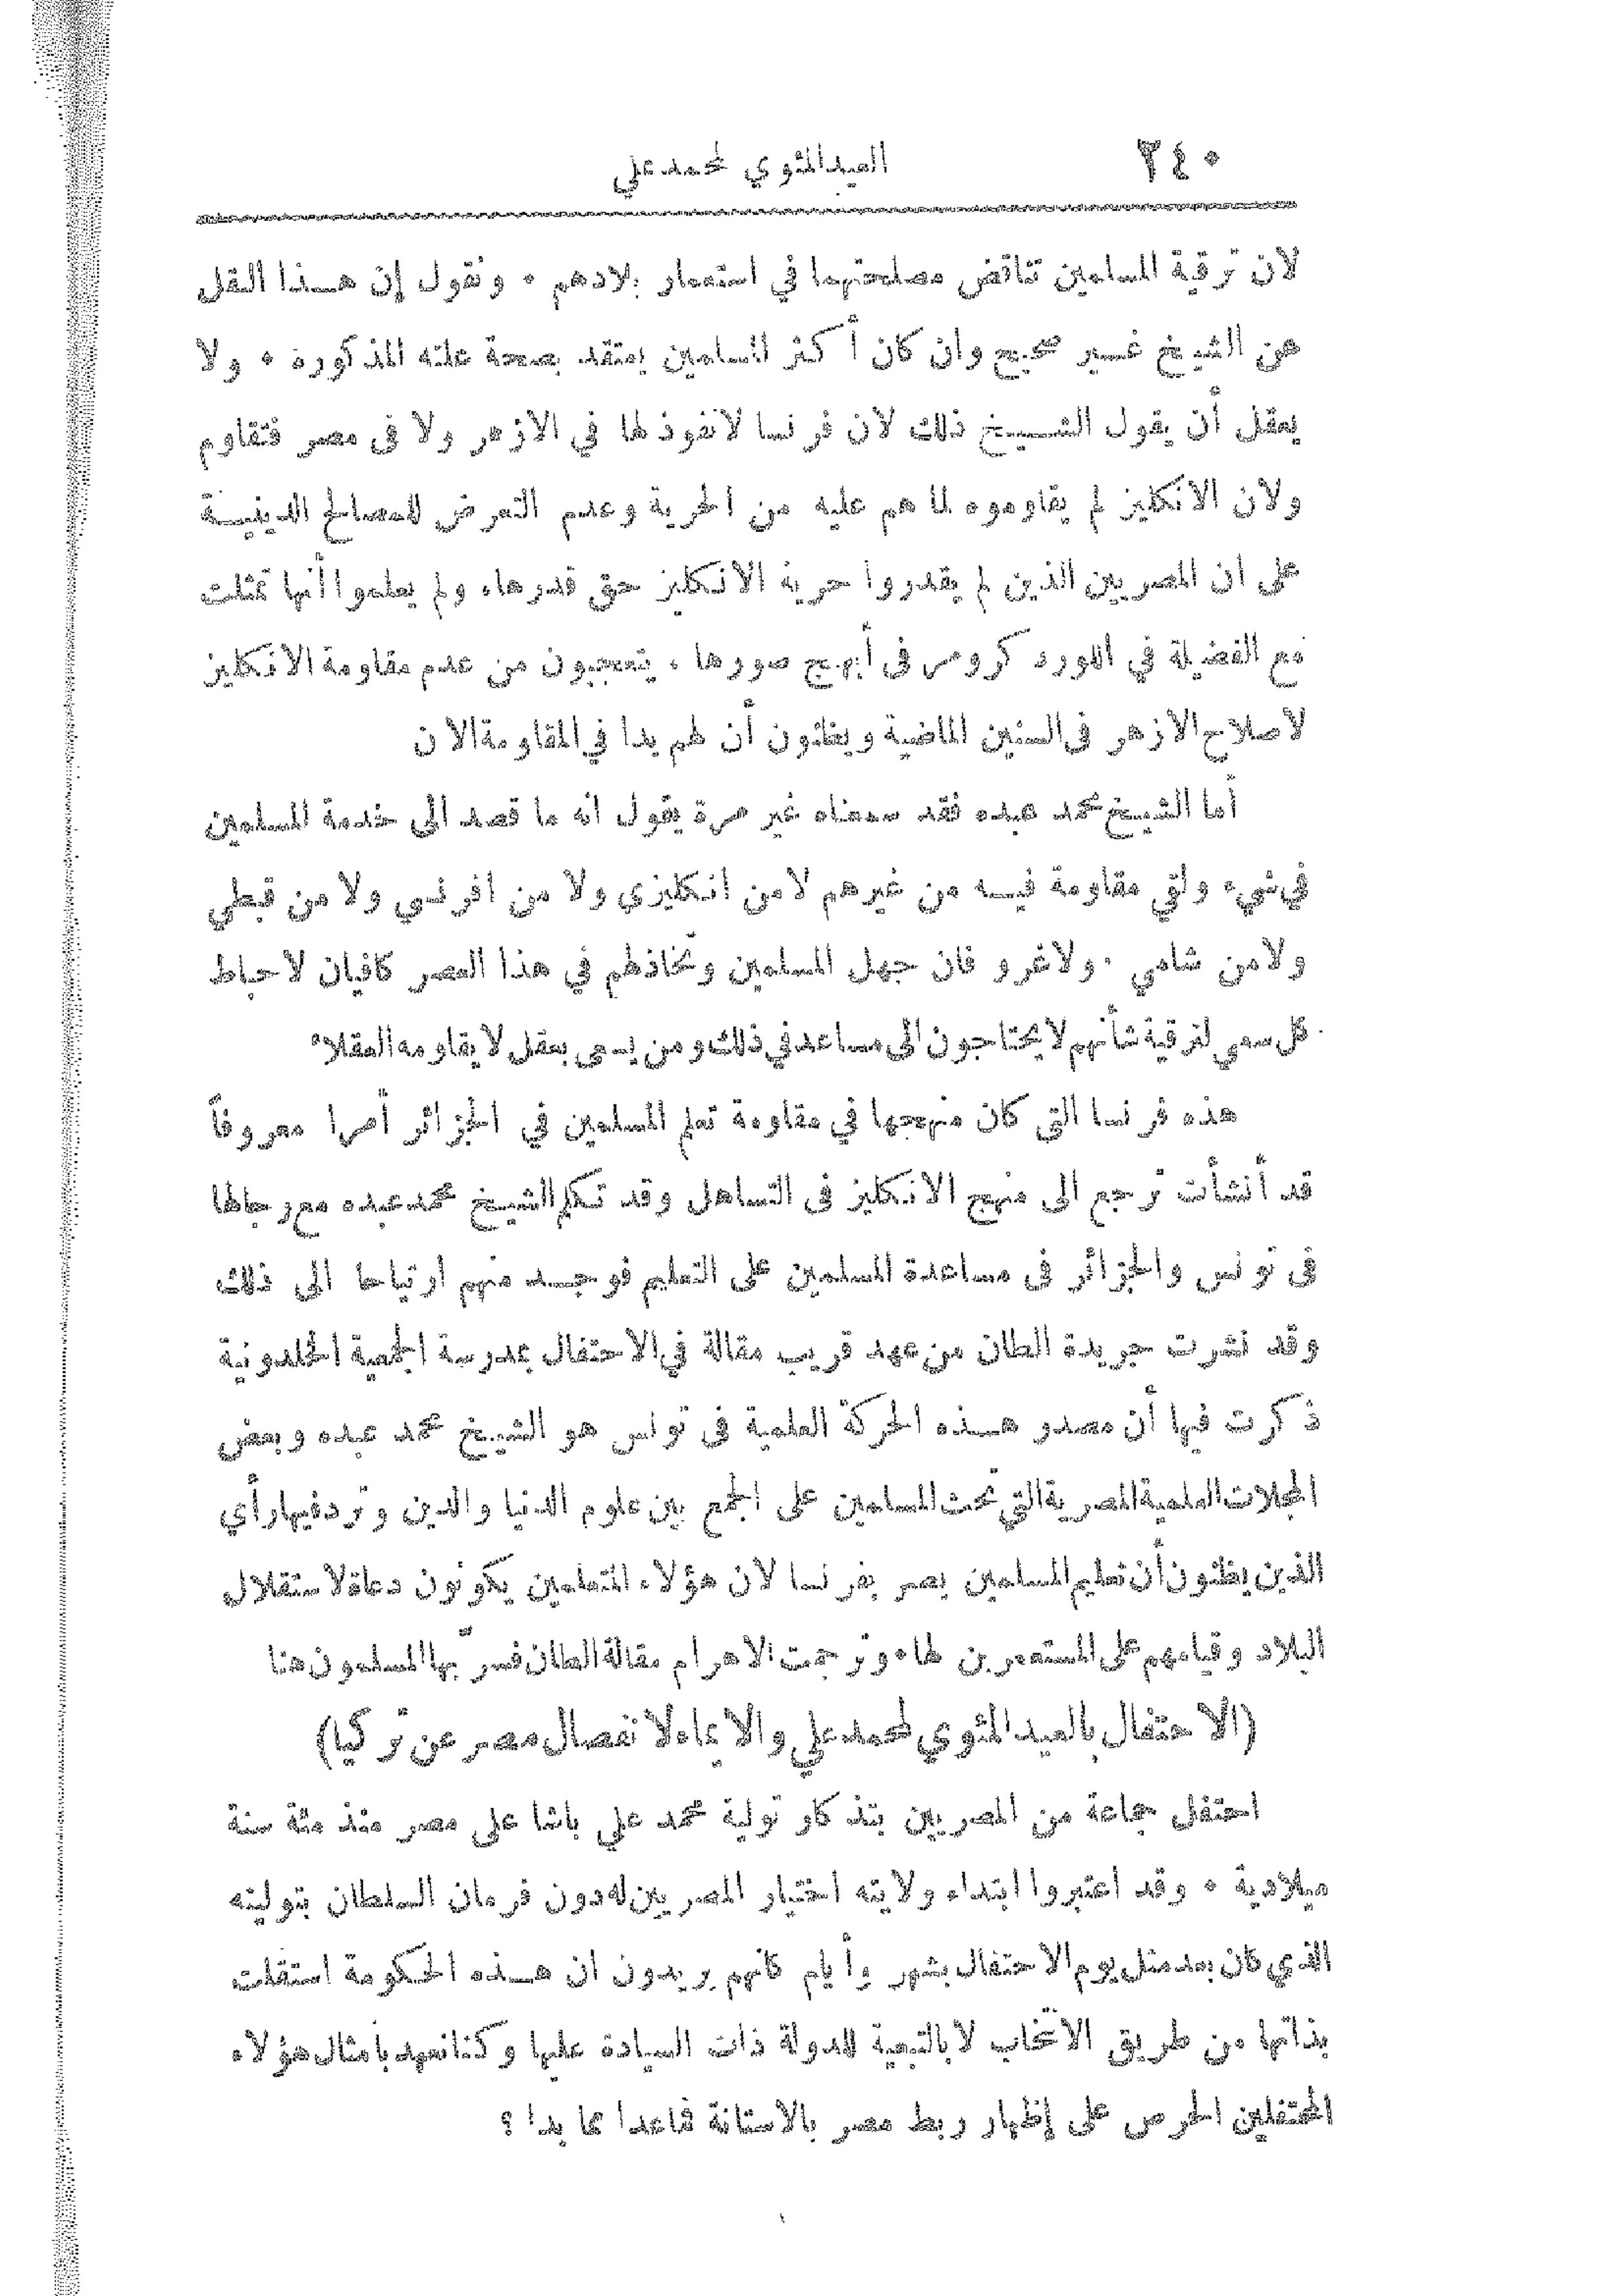 ٢٤٠ العيد المئوي لمحمد علي
لان ترقية المسلمين تناقض مصلحتهما في استعمار بلادهم ٠ ونقول إن هـذا النقل
عن الشيخ غـير صحيح وان كان أكثر المسلمين يعتقد بصحة علته المذكورة ٠ ولا
يعقل أن يقول الشـيخ ذلك لان فرنسا لانفوذ لها في الازهر ولا فى مصر فتقاوم
ولان الانكليز لم يقاوموه لما هم عليه من الحرية وعدم التعرض للمصالح الدينيـة
على ان المصريين الذين لم يقدروا حرية الانكليز حق قدرها، ولم يعلموا أنها تمثلت
مع الفضيلة في اللورد كرومر فى أبهج صورها ، يتعجبون من عدم مقاومة الانكليز
لاصلاح الازهر فى السنين الماضية ويظنون أن لهم يدا في المقاومة الا ن
أما الشيخ محمد عبده فقد سمعناه غير مرة يقول انه ما قصد الى خدمة المسلمين
في شيء ولقي مقاومة فيـه من غيرهم لامن انكليزى ولا من افرنسي ولا من قبطي
ولامن شامي ٠ ولاغرو فان جهل المسلمين وتخاذلهم في هذا العصر كافيان لاحباط
كل سعي لترقية شأنهم لا يحتاجون الى مساعد في ذلك ومن يسعى بعقل لا يقاومه العقلاء
هذه فرنسا التي كان منهجها في مقاومة تعلم المسلمين في الجزائر أمرا معروفاً
قد أنشأت ترجع الى منهج الانكليز فى التساهل وقد تكلم الشيخ محمد عبده مع رجالها
فى تونس والجزائر فى مساعدة المسلمين على التعليم فوجـد منهم ارتياحا الى ذلك
وقد نشرت جريدة الطان من عهد قريب مقالة في الاحتفال بمدرسة الجمعية الخلدونية
ذكرت فيها أن مصدر هـذه الحركة العلمية فى تونس هو الشيخ محمد عبده وبعض
المجلات العلمية المصرية التي تحث المسلمين على الجمع بين علوم الدنيا والدين وترد فيها رأي
الذين يظنون أن تعليم المسلمين يضر بفرنسا لان هؤلاء المتعلمين يكونون دعاة لاستقلال
البلاد وقيامهم على المستعمرين لها٠ وترجمت الاهرام مقالة الطان فسرّ بها المسلمون هنا
(الاحتفال بالعيد المئوي لمحمد علي والايماء لانفصال مصر عن تركيا)
احتفل جماعة من المصريين بتذكار تولية محمد علي باشا على مصر منذ مئة سنة
ميلادية ٠ وقد اعتبروا ابتداء ولايته اختيار المصريين له دون فرمان السلطان بتوليته
الذي كان بعد مثل يوم الاحتفال بشهر وأيام كانهم يريدون ان هـذه الحكومة استقلت
بذاتها من طريق الانتخاب لا بالتبعية للدولة ذات السيادة عليها وكنا نعهد بأمثال هؤلاء
المحتفلين الحرص على إظهار ربط مصر بالاستانة فماعدا مما بدا ؟